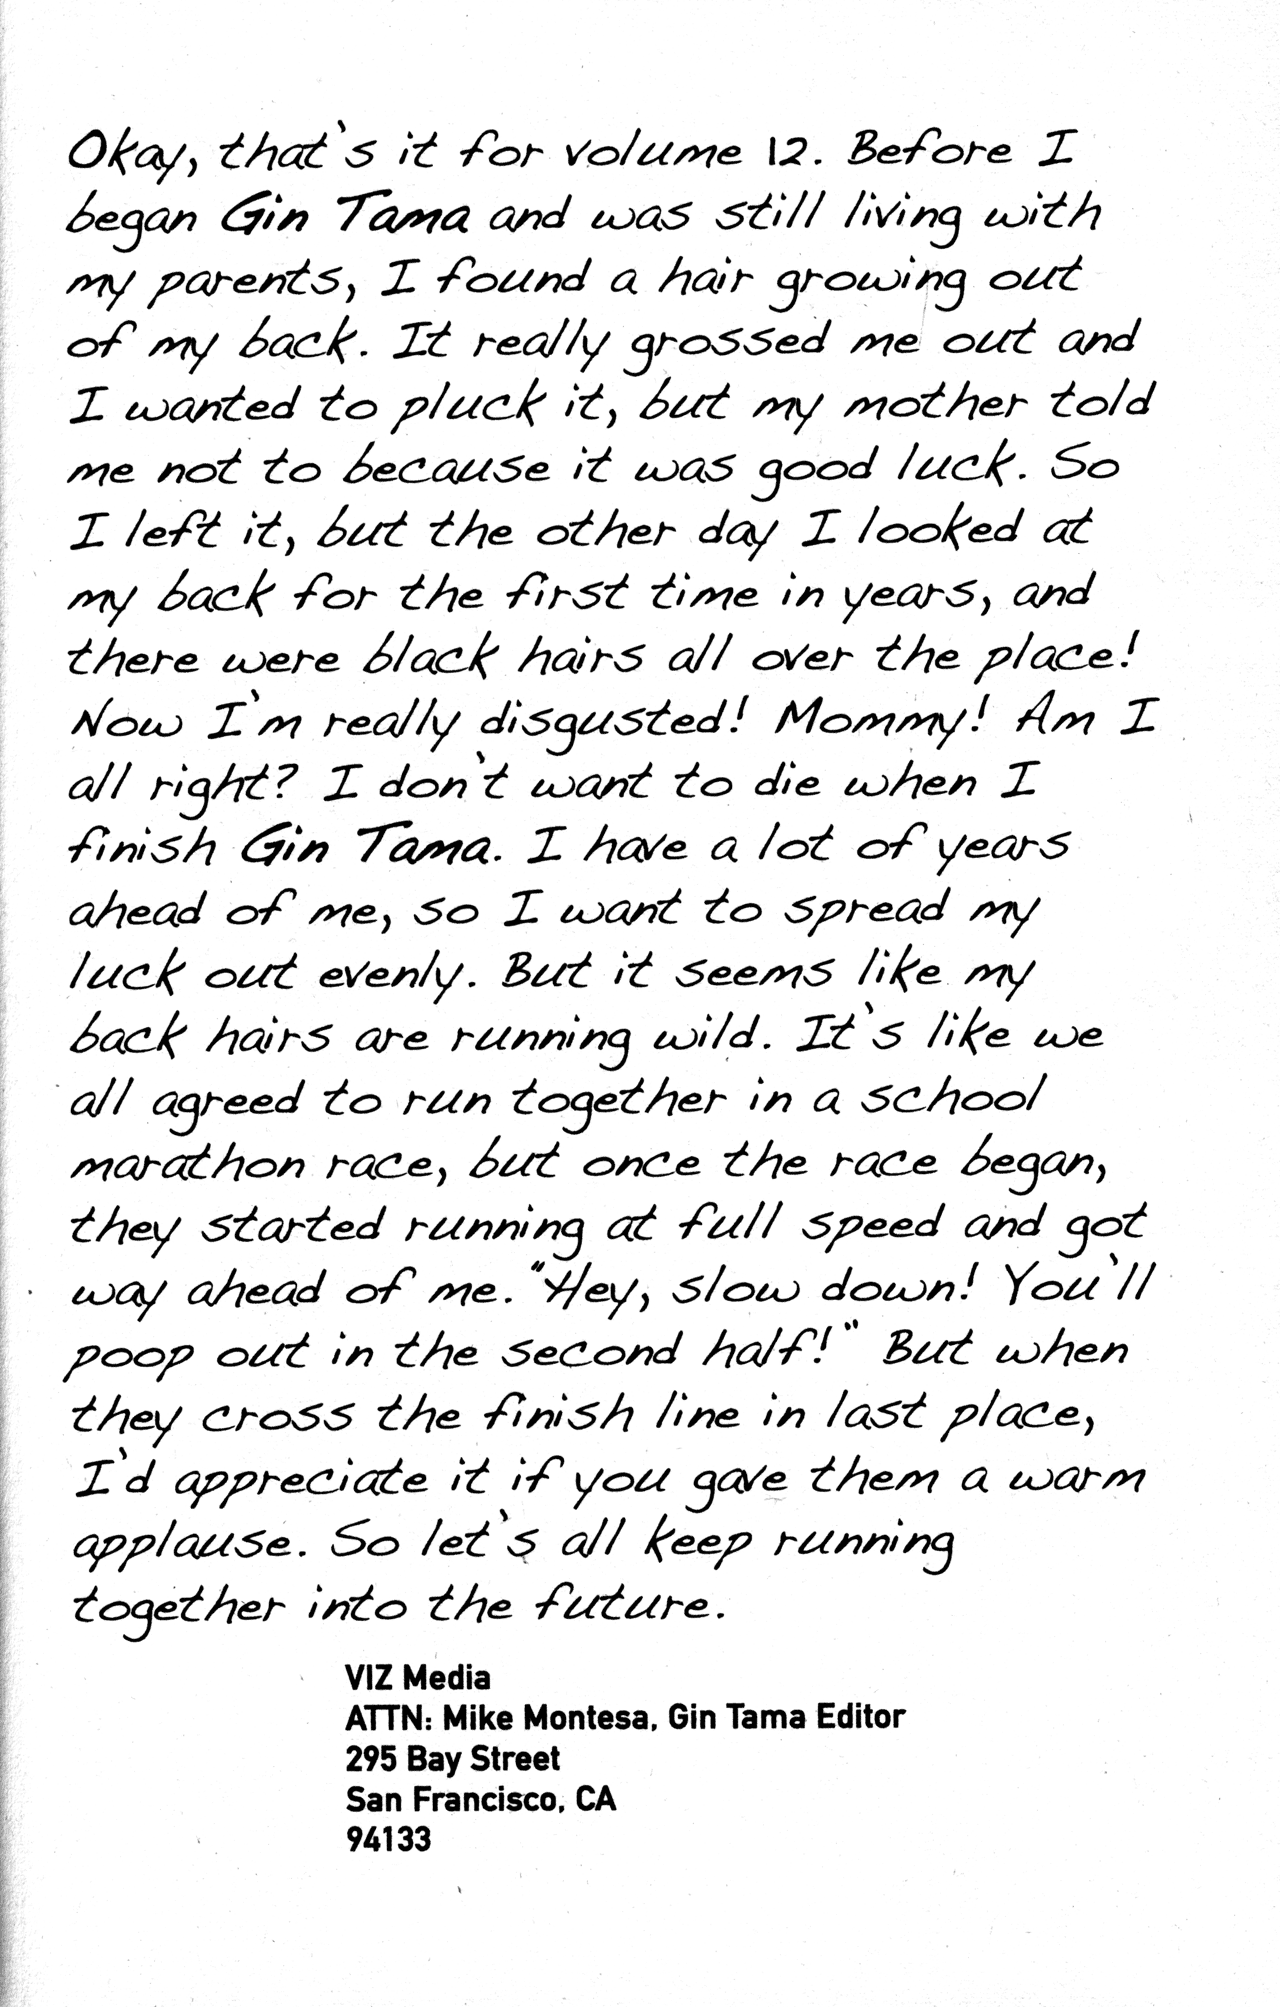 Okay, that's it for volume 12. Before I
began Gin Tama and was still living with
my parents, I found a hair growing out
of my back. It really grossed me out and
I wanted to pluck it, but my mother told
me not to because it was good luck. So
I left it, but the other day I looked at
my back for the first time in years, and
there were black hairs all over the place!
Now I'm really disgusted! Mommy! Am I
all right? I don't want to die when I
finish Gin Tama. I have a lot of years
ahead of me, so I want to spread my
luck out evenly. But it seems like my
back hairs are running wild. It's like we
all agreed to run together in a school
marathon race, but once the race began,
they started running at full speed and got
way ahead of me. "Hey, slow down! You'll
poop out in the second half!" But when
they cross the finish line in last place,
I'd appreciate it if you gave them a warm
applause. So let's all keep running
together into the future.
VIZ Media
ATTN: Mike Montesa, Gin Tama Editor
295 Bay Street
San Francisco, CA
94133